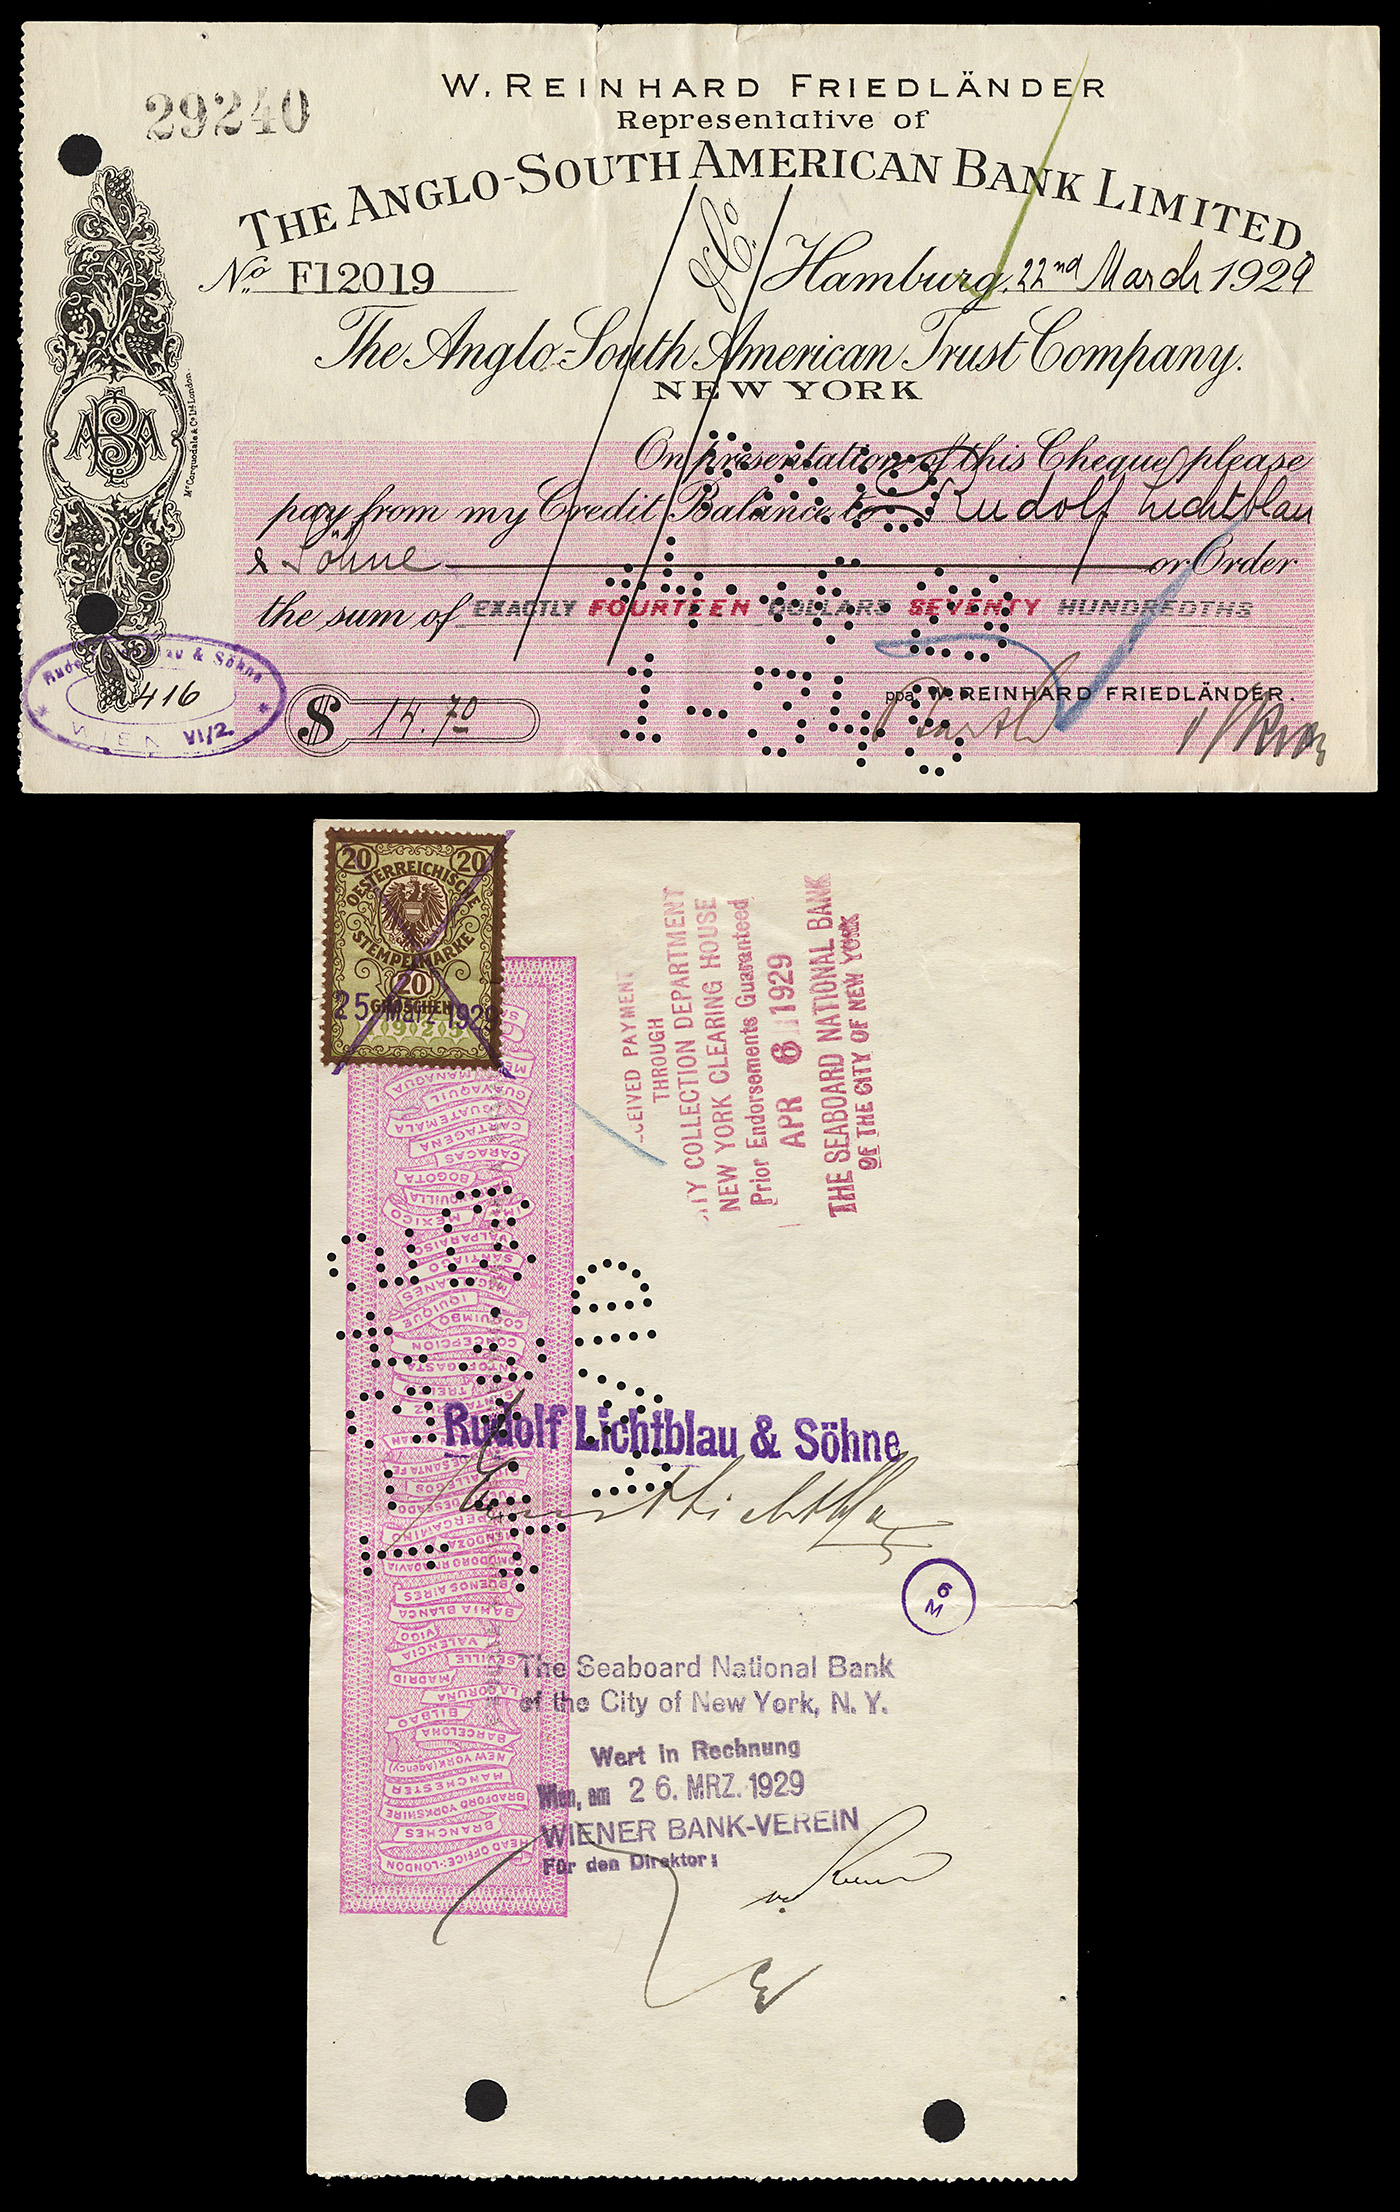 29240
W. REINHARD FRIEDLÄNDER
Representative of
THE ANGLO-SOUTH AMERICAN BANK LIMITED.
& Co.
No. F12019
Hamburg, 22nd March 1929
The Anglo-South American Trust Company.
NEW YORK
ABSA
McCorquodale & Co. Ltd London.
On presentation of this Cheque please
pay from my Credit Balance to Rudolf Lichtblau
& Söhne or Order
the sum of EXACTLY FOURTEEN DOLLARS SEVENTY HUNDREDTHS
$ 14.70
ppa W. REINHARD FRIEDLÄNDER.
& Söhne
416
WIEN VI/2.
20 20
OESTERREICHISCHE
STEMPELMARKE
20
GROSCHEN
1925
25 März 1929
CEIVED PAYMENT
THROUGH
COLLECTION DEPARTMENT
NEW YORK CLEARING HOUSE
Prior Endorsements Guaranteed
APR 6 1929
THE SEABOARD NATIONAL BANK
OF THE CITY OF NEW YORK
MANAGUA
GUAYAQUIL
GUATEMALA
CARTAGENA
CARACAS
BOGOTA
MEXICO
VALPARAISO
SANTIAGO
IQUIQUE
COQUIMBO
CONCEPCION
ANTOFAGASTA
SANTA FE
PERGAMINO
MENDOZA
COMODORO RIVADAVIA
BUENOS AIRES
BAHIA BLANCA
VIGO
VALENCIA
SEVILLE
MADRID
LA CORUNA
BILBAO
BARCELONA
NEW YORK (Agency)
MANCHESTER
BRADFORD YORKSHIRE
BRANCHES
HEAD OFFICE:-LONDON
Rudolf Lichtblau & Söhne
6
M
The Seaboard National Bank
of the City of New York, N. Y.
Wert in Rechnung
Wien, am 26. MRZ. 1929
WIENER BANK-VEREIN
Für den Direktor: